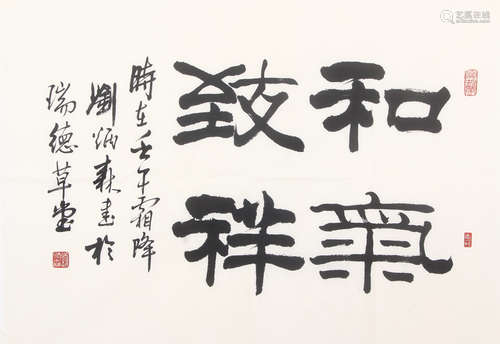 和氣
致祥
時在壬午霜降
劉炳森書於
瑞德草堂